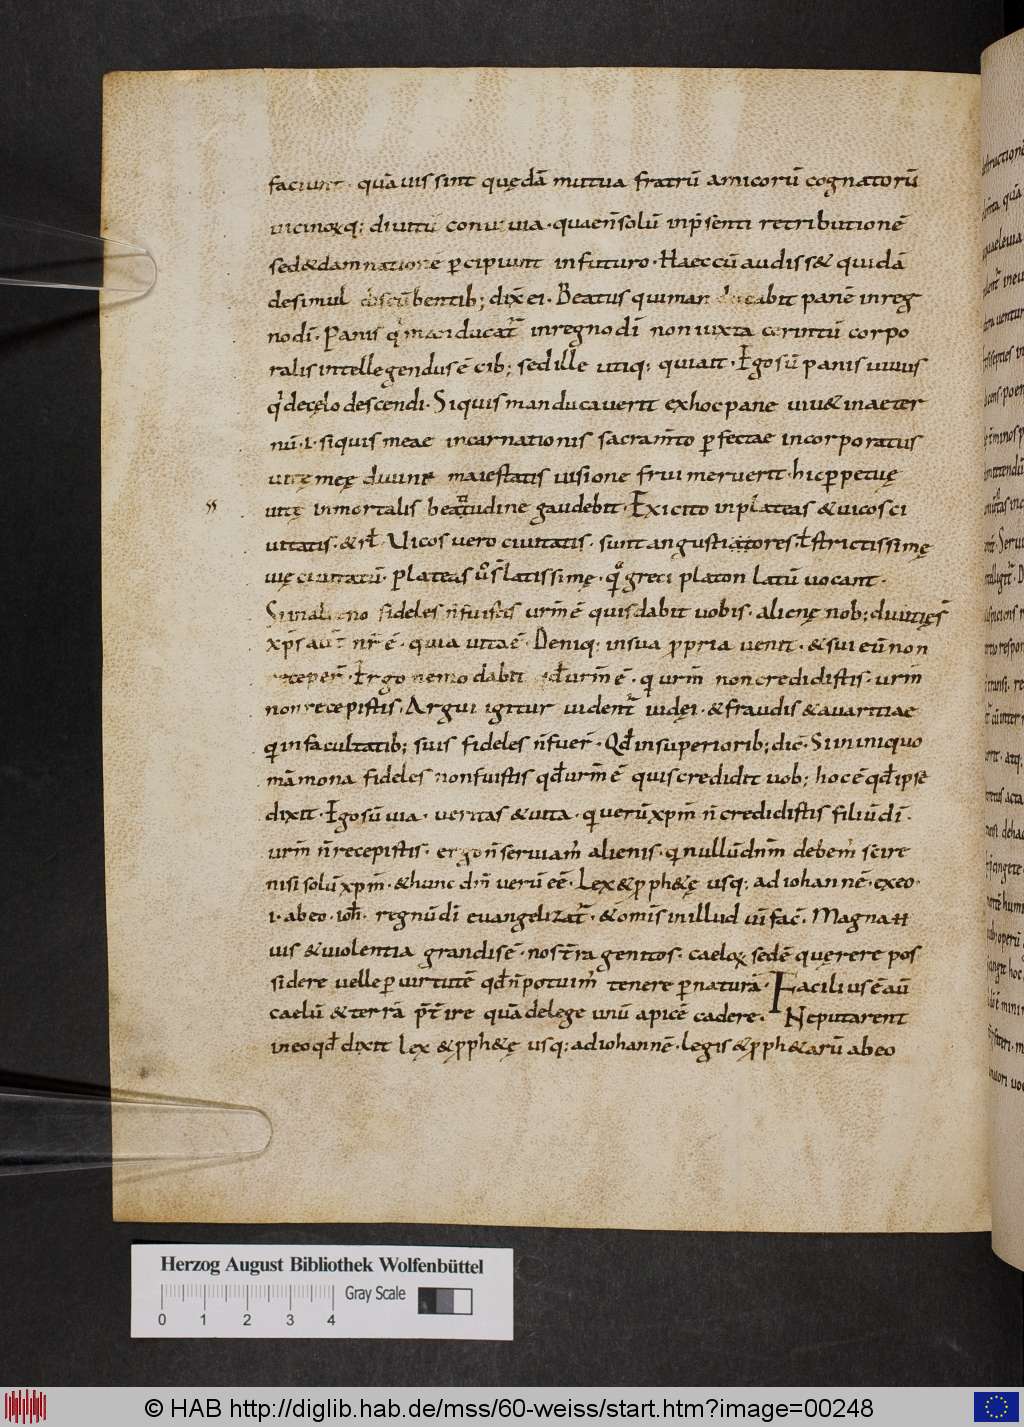 faciunt · quāuis sint quędā mutua fratrū amicorū cognatorū
uicinoꝝq; diuitū conuiuia · quaen̄solū inp̄senti retributionē
sed&damnatione ꝑcipiunt infuturo · Haeccū audiss& quidā
desimul discūbentib; dix̄ ei · Beatus quimanducabit panē inreg
nodī · Panis q manducat̄ inregnodī non iuxta cerintū corpo
ralis intellegendus ē cib; sed ille utiq; quiait · Ego sū panis uiuus
q decęlo descendi · Siquis manducauerit exhoc pane uiu& inaeter
nū · i · siquis meae incarnationis sacram̄to ꝑfectae incorporatus
uitę meę diuinę maiestatis uisione frui meruerit · hic ꝑpetuę
uitę inmortalis beatitudine gaudebit · Exi cito inplateas &uicos ci
uitatis · &rł Uicos uero ciuitatis · sunt angustiores · ł strictissimę
uię ciuitatū · plateas u̓ s̄ latissimę · q greci platon latū uocant ·
Sinalieno fideles n̄ fuistis urm̄ ē quis dabit uobis · alienę nob; diuitię s̄
xp̄s aut̄ nr̄ ē · quia uita ē · Deniq; insua ꝓpria uenit · &sui eū non
receper̄ · Ergo nemo dabit qđ urm̄ ē · q urm̄ non credidistis · urm̄
non recepistis · Argui igitur uident̄ iudęi · &fraudis &auaritiae
q infacultatib; suis fideles n̄ fuer̄ · Qđ insuperiorib; dic̄ · Si iniquo
māmona fideles nonfuistis qđ urm̄ ē quis credidit uob; hoc ē qđ ipse
dixit · Ego sū uia · ueritas &uita · q uerū xpm̄ n̄ credidistis filiū dī ·
urm̄ n̄ recepistis · ergo n̄ seruiam̄ alienis · q nullū dnm̄ debem̄ scire
nisi solū xpm̄ · &hunc dm̄ uerū ēē · Lex &ꝓph&ę usq; adiohannē · exeo ·
i · abeo · ioh̄ · regnū dī euangelizat̄ · &omīs inillud uī fac̄ · Magna H
uis &uiolentia grandis ē · nos t̄ra genitos · caeloꝝ sedē quęrere pos
sidere uelle ꝑ uirtutē qđ n̄ potuim̄ tenere ꝑ naturā · Facilius ē aū
caelū &terrā p̄t̄ire quā delege unū apicē cadere · Neputarent
ineo qđ dixit lex &ꝓph&ę usq; adiohannē · legis &ꝓph&arū abeo
Herzog August Bibliothek Wolfenbüttel
Gray Scale
0 1 2 3 4
© HAB http://diglib.hab.de/mss/60-weiss/start.htm?image=00248